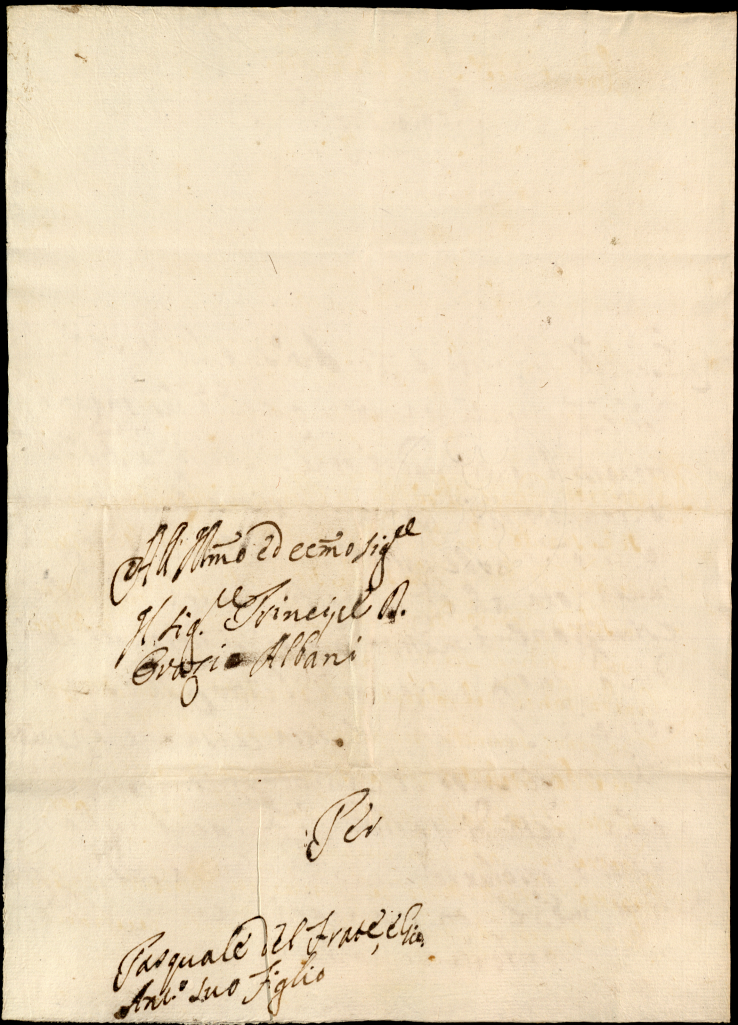 All' Ill͞mo ed ecc͞mo sig.re
Il sig.re Principe D.
Orazio Albani
Per
Pasquale del Frate, e Gio.
Ant.o suo Figlio